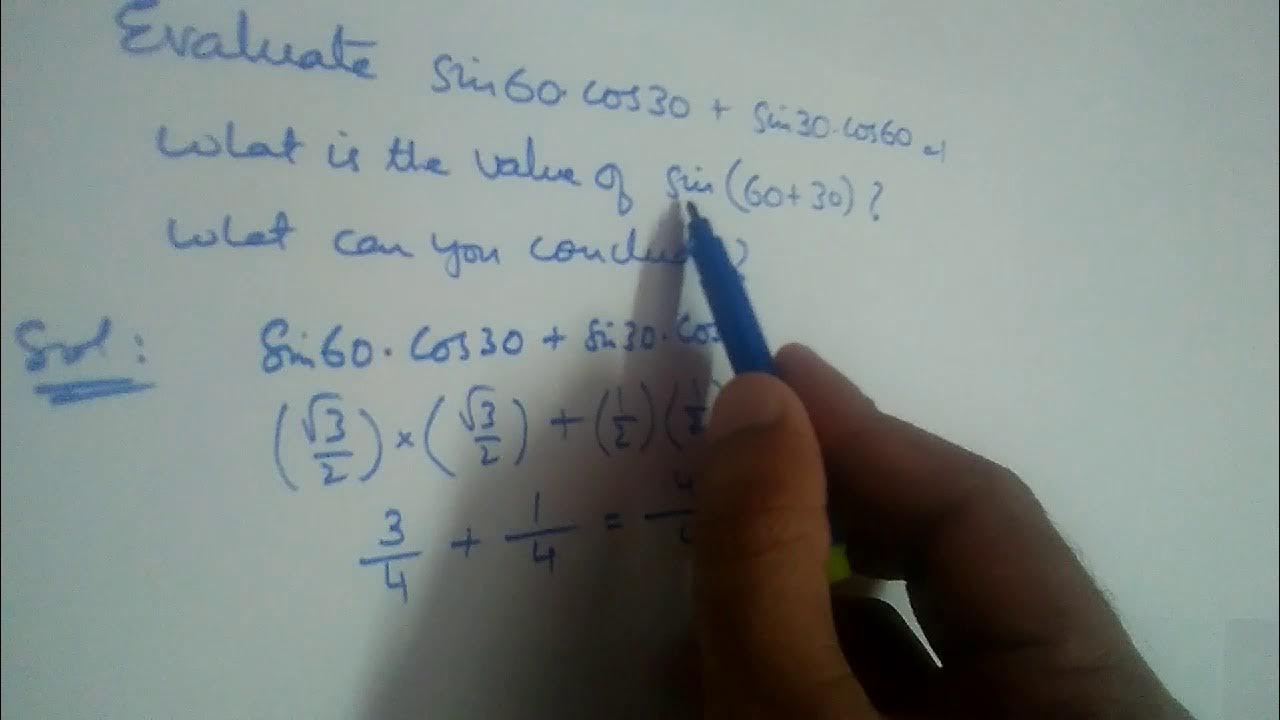 Evaluate sin60·cos30 + sin30·cos60
What is the value of sin(60+30)?
What can you
Sol: Sin60·Cos30 + Sin30·Cos
(√3/2) × (√3/2) + (1/2)(1/2
3/4 + 1/4 =